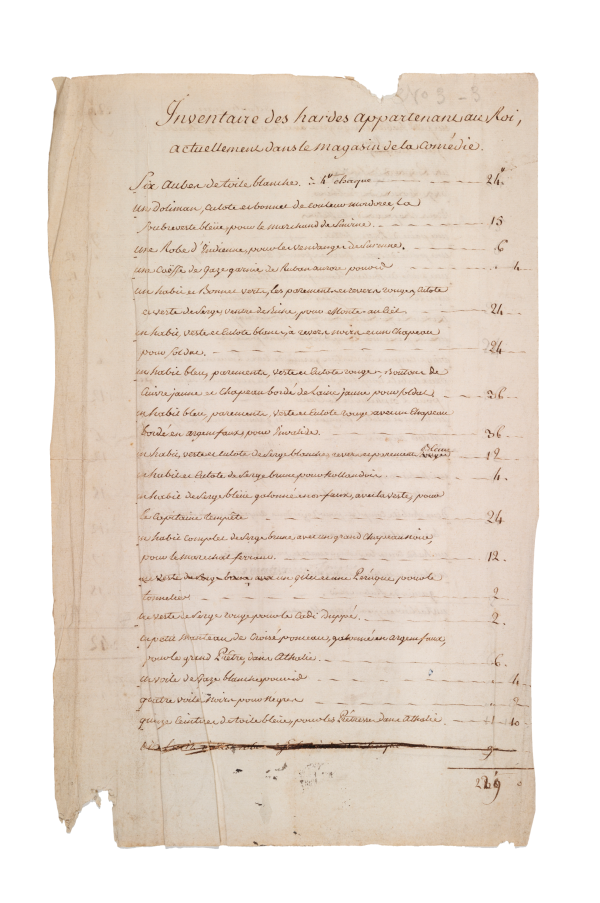 2403 - 3
Inventaire des hardes appartenant au Roi,
actuellement dans le magasin de la Comédie.
Six Aubes de toile blanche. à 4# chaque 24.#
un Doliman, culote et bonnet de couleur mordorée La
Soubreveste bleüe, pour le marchand de Smirne. 15
une Robe d'Indienne, pour les vendanges de Surenne. 6
une Coëffe de Gaze garnie de Ruban aurore 4
un habit et Bonnet verte, les parements et revers rouges, culote
et veste de Serge ventre de biche, pour Monte-au-Ciel 24
un habit, veste et culote blanc, à revers noirs et un Chapeau
pour soldat. 24
un habit bleu, parements, veste et culote rouge, Boutons de
Cuivre jaune et Chapeau bordé de laine jaune pour soldat 36
un habit bleu, parements, veste et culote rouge avec un Chapeau
bordé en argent faux, pour Invalide. 36
un habit, veste et culote de Serge blanche, revers et parements bleus 12
un habit et Culote de Serge brune pour hollandois 4.
un habit de Serge bleüe galonné en or faux, avec la veste, pour
le Capitaine tempête 24
un habit complet de Serge brune, avec un grand Chapeau noir,
pour le marechal ferrant. 12.
une veste de Serge brune avec un gilet et une Péruque pour le
tonnelier 2
une veste de Serge rouge pour le Cadi Duppé. 2.
un petit manteau de Croisé ponceau, galonné en argent faux,
pour le grand Prêtre, dans Athalie. 6.
un voile de Gaze blanche 4
quatre voile Noirs pour Negres 2
quinze Ceintures de toile bleüe, pour les Prêtresses dans Athalie 1 10
9
229